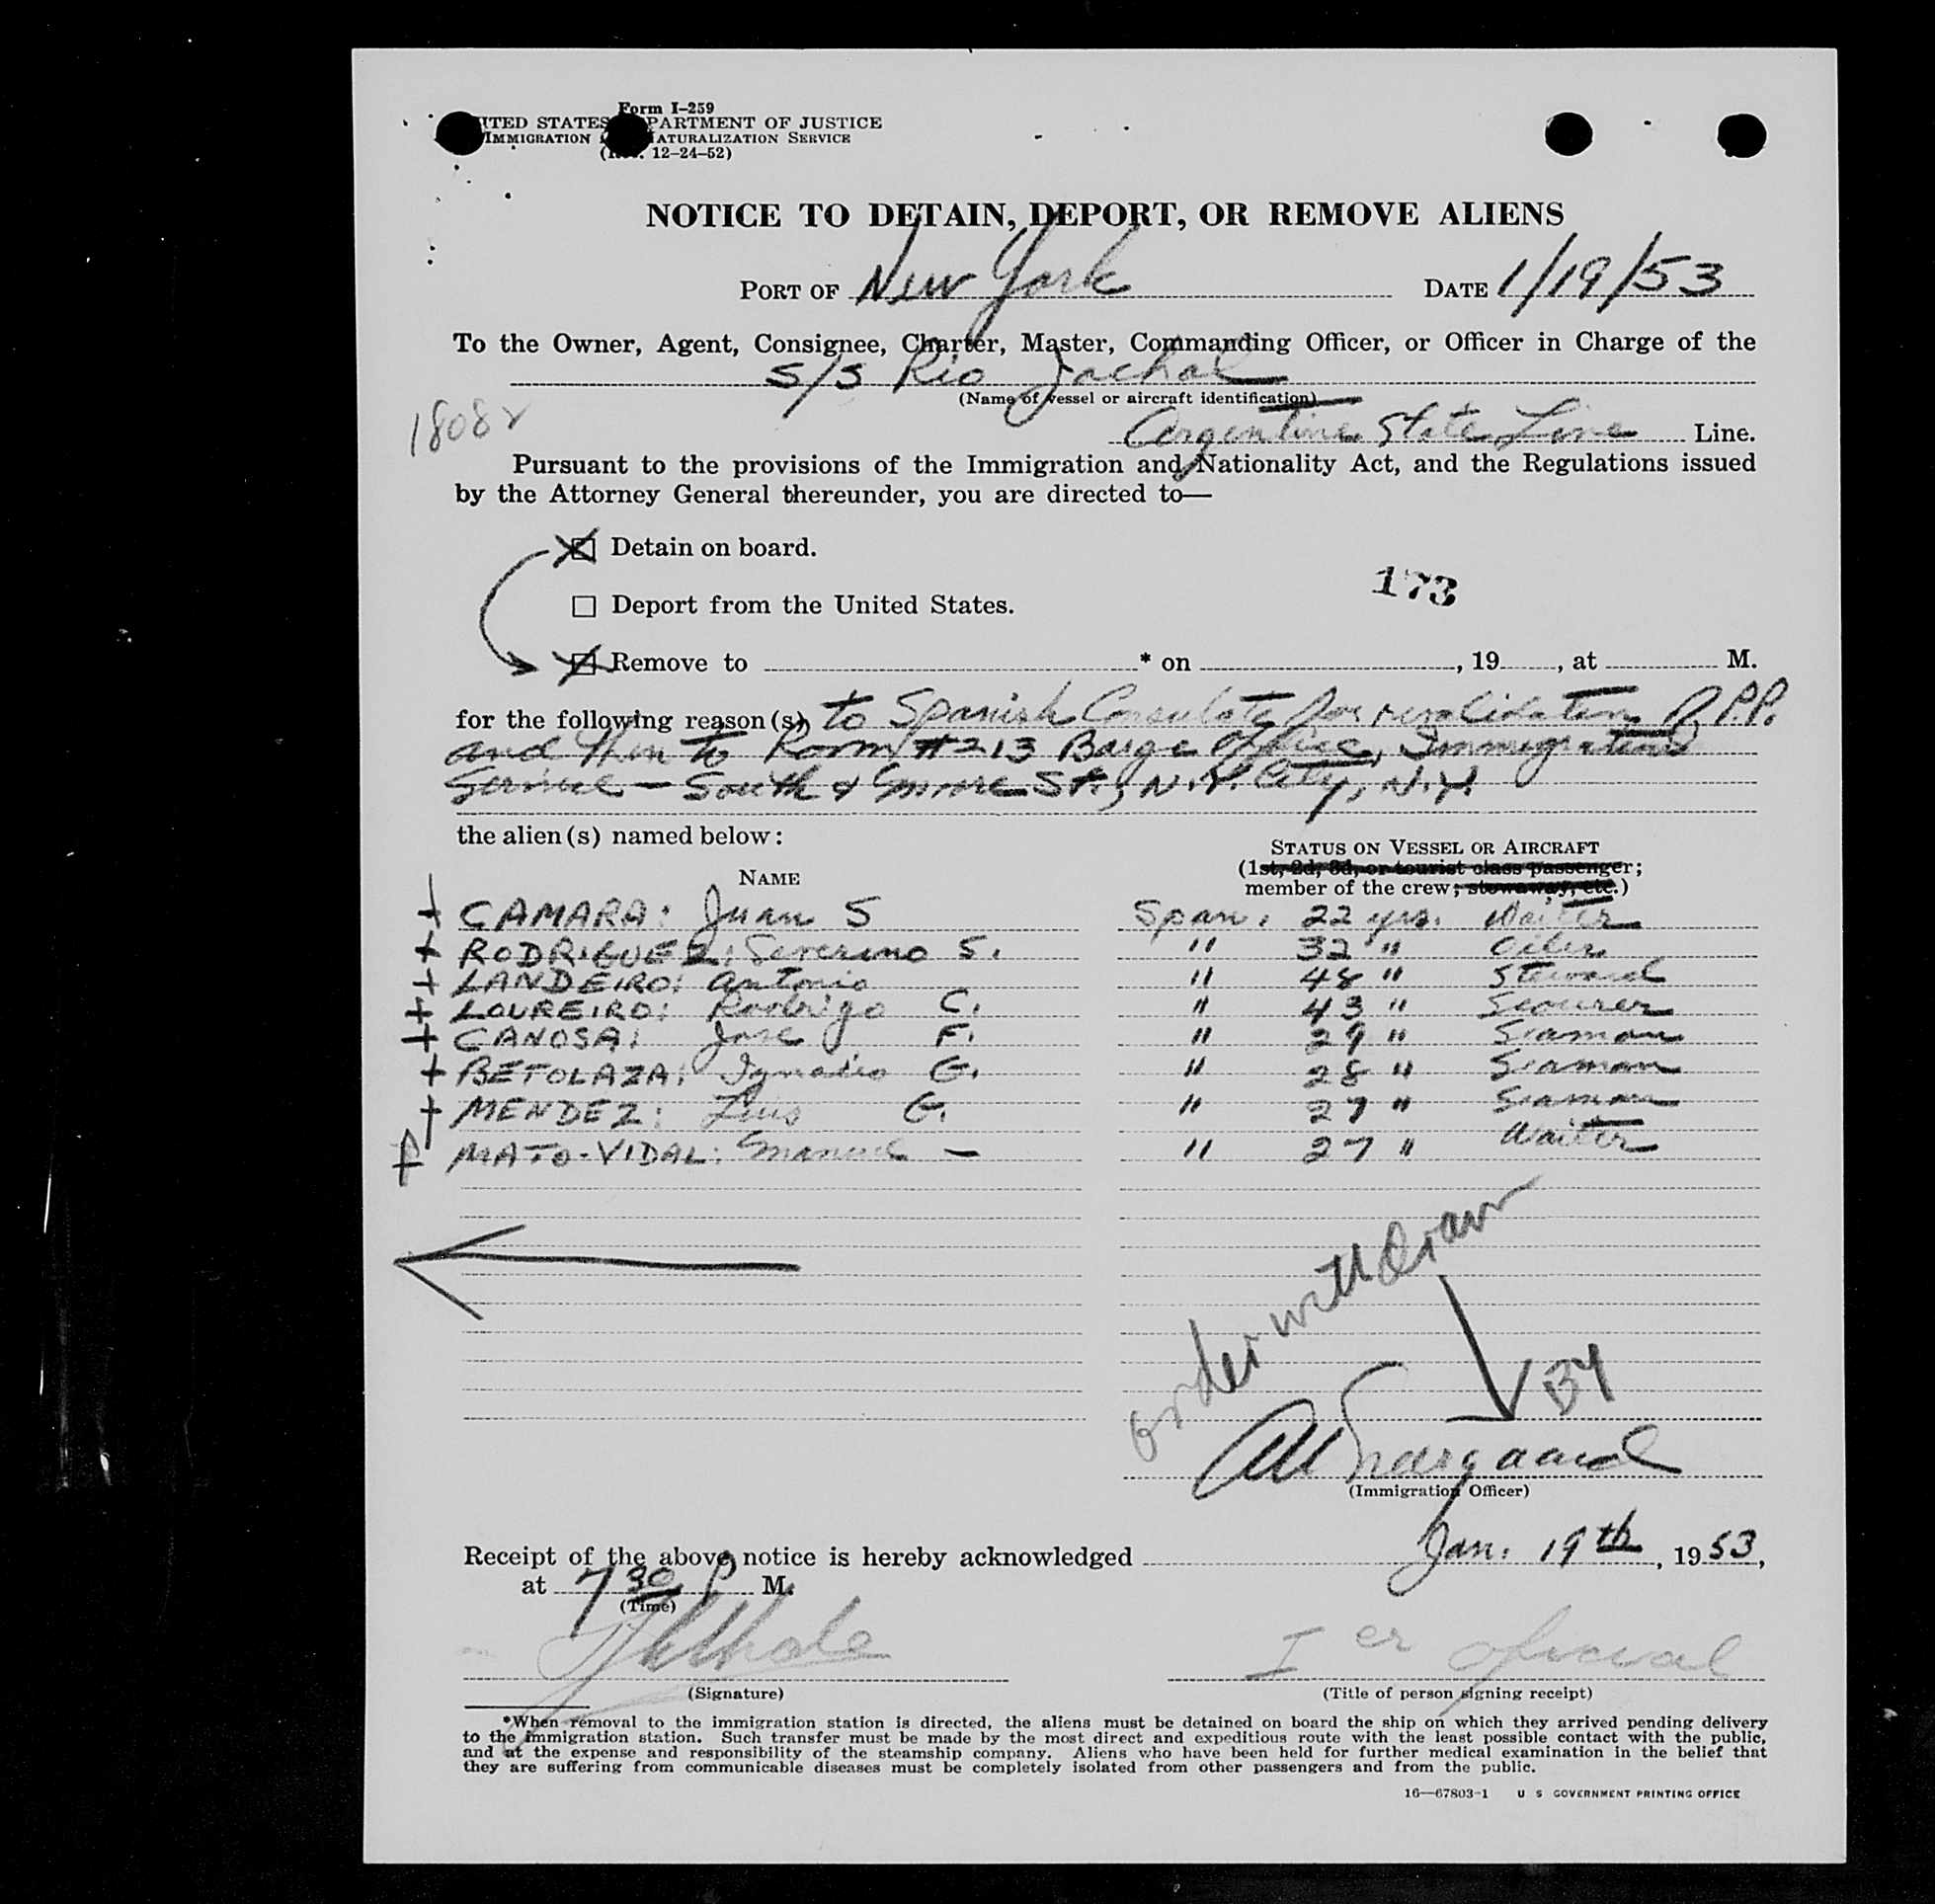 Form I-259
ITED STATES PARTMENT OF JUSTICE
IMMIGRATION ATURALIZATION SERVICE
12-24-52)
NOTICE TO DETAIN, DEPORT, OR REMOVE ALIENS
PORT OF New York DATE 1/19/53
To the Owner, Agent, Consignee, Charter, Master, Commanding Officer, or Officer in Charge of the
S/S Rio Jachal
(Name of vessel or aircraft identification)
18082
Argentine State Line Line.
Pursuant to the provisions of the Immigration and Nationality Act, and the Regulations issued
by the Attorney General thereunder, you are directed to—
Detain on board.
173
Deport from the United States.
Remove to * on , 19 , at M.
for the following reason(s) to Spanish Consulate for revalidation of P.P.
and then to Room #213 Barge Office, Immigration
Service — South & Moore St., N.Y. City, N.Y.
the alien(s) named below:
STATUS ON VESSEL OR AIRCRAFT
(1st, 2d, 3d, or tourist class passenger;
NAME
member of the crew; stowaway, etc.)
CAMARA: Juan S Span. 22 yrs. Waiter
RODRIGUEZ: Severino S. " 32 " Oiler
LANDEIRO: Antonio " 48 " Steward
LOUREIRO: Rodrigo C. " 43 " Scourer
CANOSA: Jose F. " 29 " Seaman
BETOLAZA: Ignacio G. " 28 " Seaman
MENDEZ: Luis G. " 27 " Seaman
MATO-VIDAL: Manuel — " 27 " Waiter
order withdrawn
BY
(Immigration Officer)
Receipt of the above notice is hereby acknowledged Jan. 19th, 1953,
at 7 30 P M.
(Time)
1er oficial
(Signature) (Title of person signing receipt)
*When removal to the immigration station is directed, the aliens must be detained on board the ship on which they arrived pending delivery
to the immigration station. Such transfer must be made by the most direct and expeditious route with the least possible contact with the public,
and at the expense and responsibility of the steamship company. Aliens who have been held for further medical examination in the belief that
they are suffering from communicable diseases must be completely isolated from other passengers and from the public.
16—67803-1 U S GOVERNMENT PRINTING OFFICE